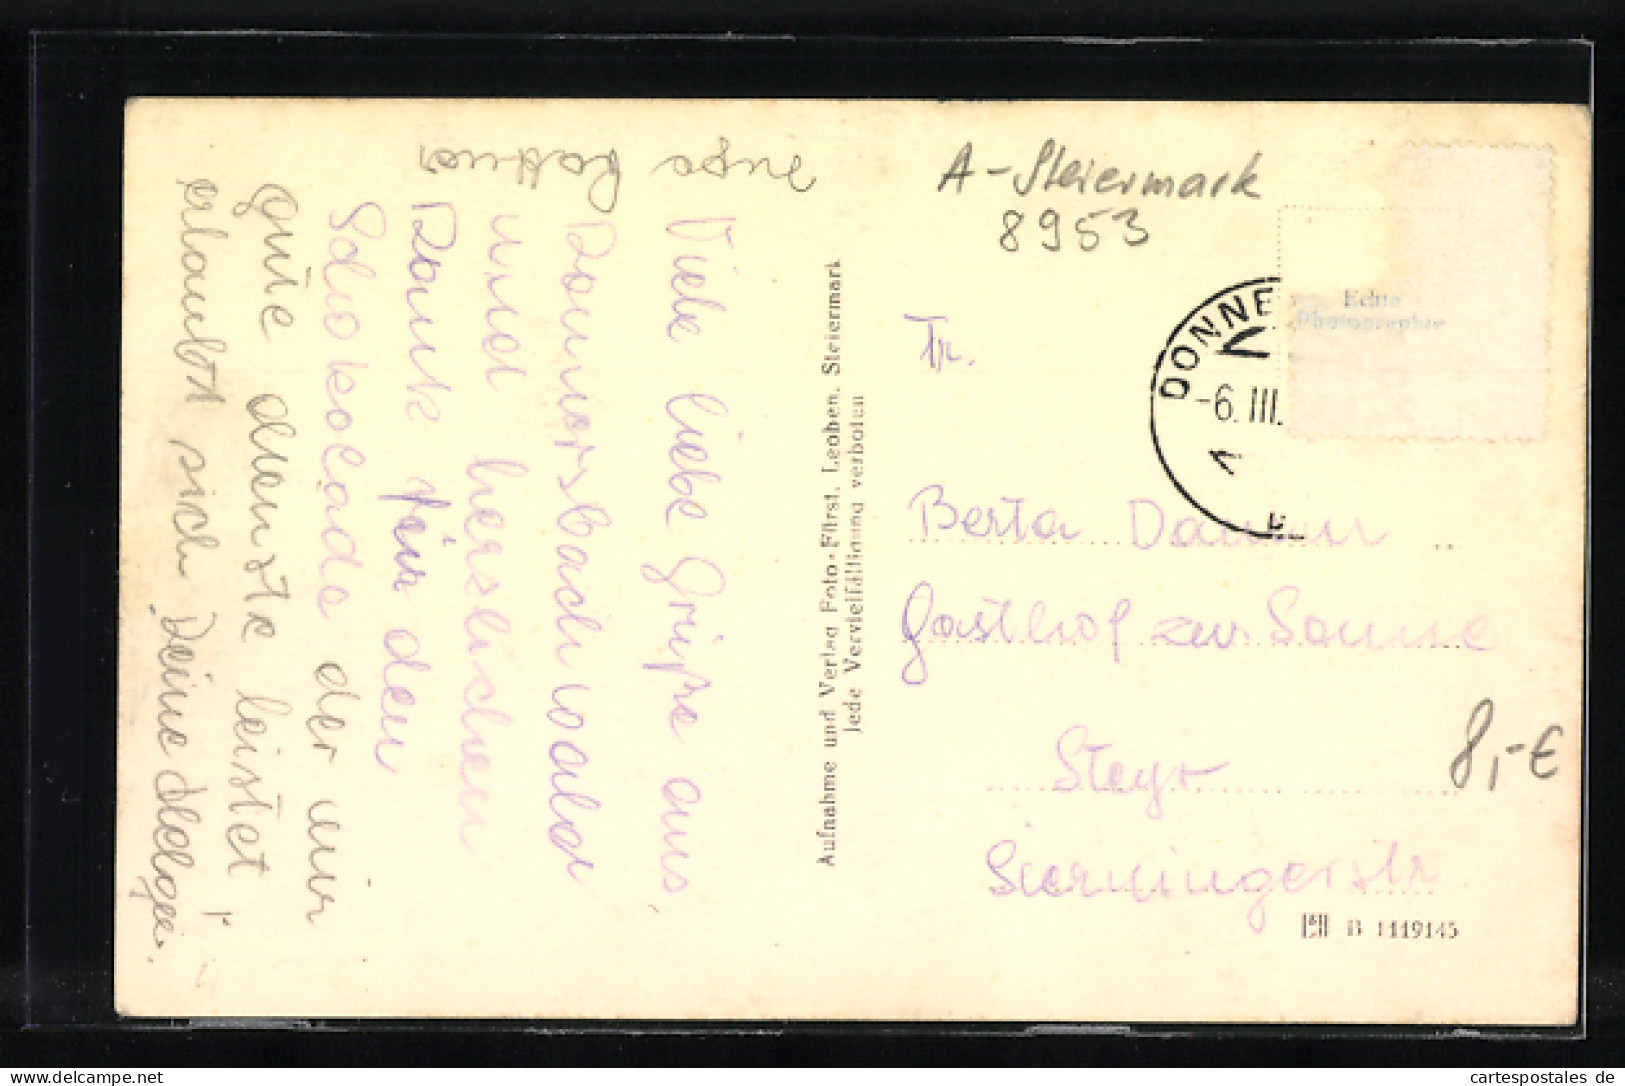 Viele liebe Grüße aus
Donnersbachwald
und herzlichen
Dank für den
Schokolade der mir
gute dienste leistet
erlaubt sich Deine
A - Steiermark
8953
Echte
Photographie
DONNE
-6. III.
Fr.
Berta
Gasthof zur Sonne
Steyr
Sierningerstr
8,-€
Aufnahme und Verlag Foto-Fürst, Leoben, Steiermark
Jede Vervielfältigung verboten
B 1119145
Delcampe.net
cartespostales de